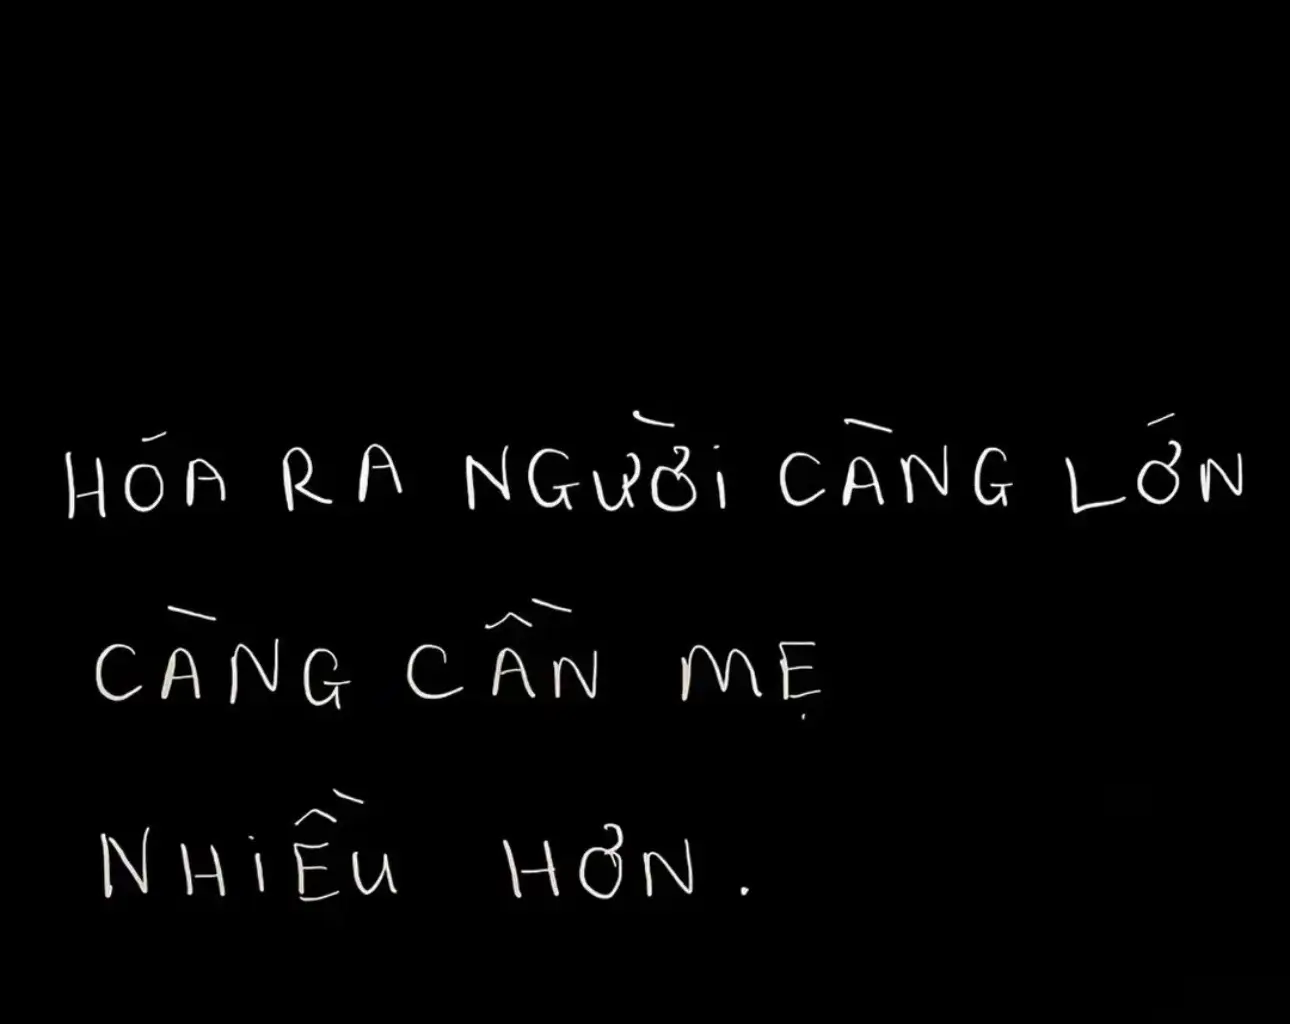 HÓA RA NGƯỜI CÀNG LỚN
CÀNG CẦN MẸ
NHIỀU HƠN.